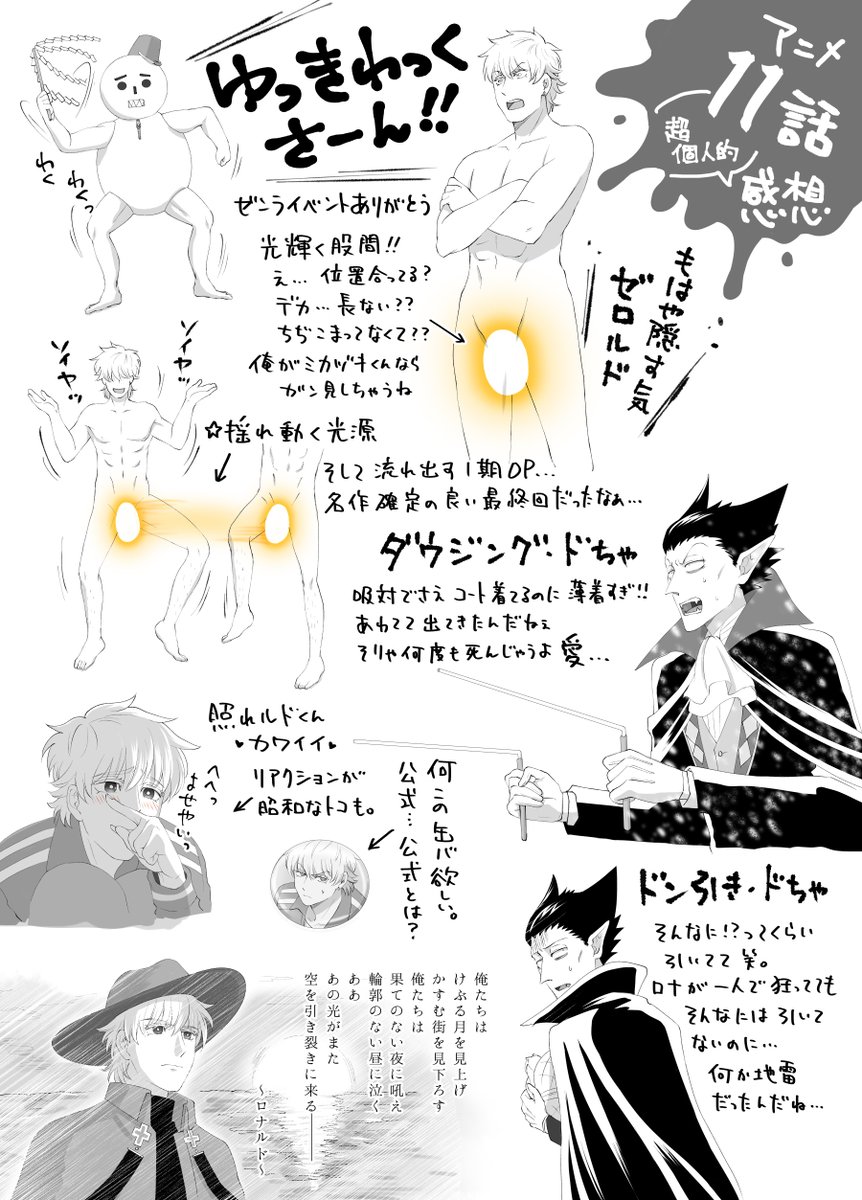 アニメ
11話
超個人的
感想
ゆっきわっく
さーん!!
わく
わくっ
ゼンライベントありがとう
光輝く股間!!
え…位置合ってる?
デカ…長ない??
ちぢこまってなくて??
俺がミカヅキくんなら
ガン見しちゃうね
もはや隠す気
ゼロルド
ソイヤッ
ソイヤッ
☆揺れ動く光源
そして流れ出す1期OP…
名作確定の良い最終回だったなぁ…
ダウジング・ドちゃ
吸対でさえコート着てるのに薄着すぎ!!
あわてて出てきたんだねぇ
そりゃ何度も死んじゃうよ 愛…
照れルドくん
♥カワイイ♥
リアクションが
昭和なトコも。
へへっ
よせやいっ
何この缶バ欲しい。
公式…公式とは?
ドン引き・ドちゃ
そんなに!?ってくらい
引いてて笑。
ロナが一人で狂ってても
そんなには引いて
ないのに…
何か地雷
だったんだね…
俺たちは
けぶる月を見上げ
かすむ街を見下ろす
俺たちは
果てのない夜に吼え
輪郭のない昼に泣く
ああ
あの光がまた
空を引き裂きに来る――
～ロナルド～